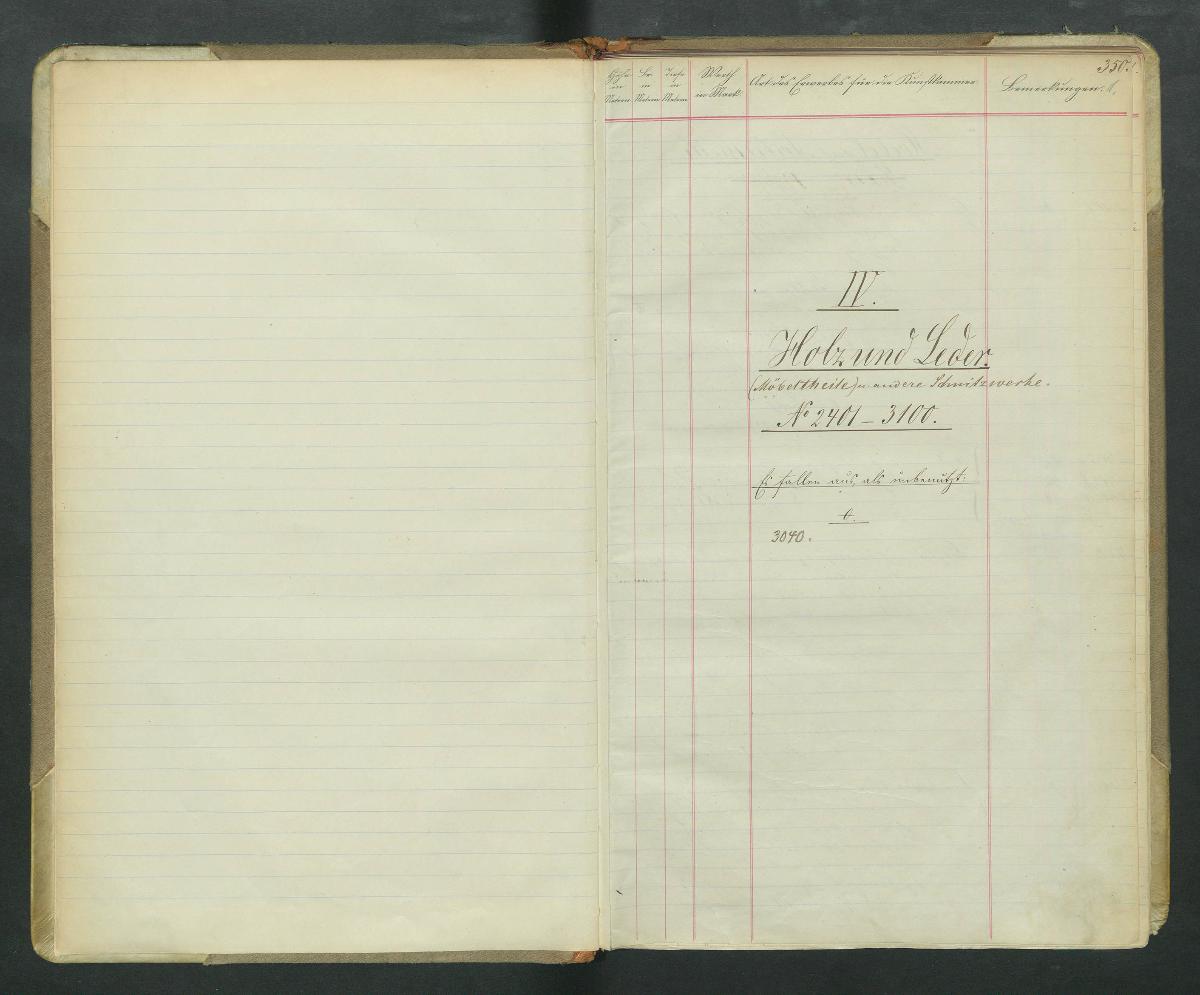 350.
Höhe in Metern
Br. in Metern
Tiefe in Metern
Werth in Mark.
Art des Erwerbes für die Kunstkammer
Bemerkungen.
IV.
Holz und Leder.
(Möbeltheile) u. andere Schnitzwerke.
No 2401 – 3100.
Es fallen aus, als unbenutzt:
3040.